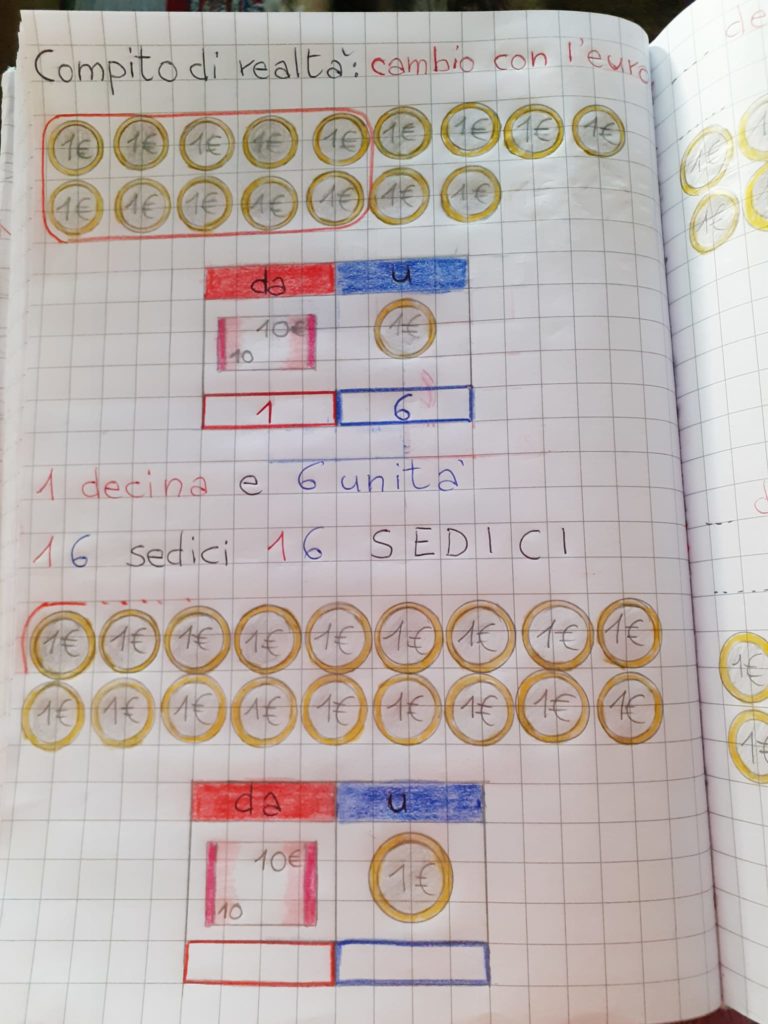 Compito di realtà: cambio con l'euro
1€ 1€ 1€ 1€ 1€ 1€ 1€ 1€ 1€
1€ 1€ 1€ 1€ 1€ 1€ 1€
da u
10€ 1€
10
1 6
1 decina e 6 unità
16 sedici 16 SEDICI
1€ 1€ 1€ 1€ 1€ 1€ 1€ 1€ 1€
1€ 1€ 1€ 1€ 1€ 1€ 1€ 1€ 1€
da u
10€ 1€
10
de
1€
1€
1€
1€